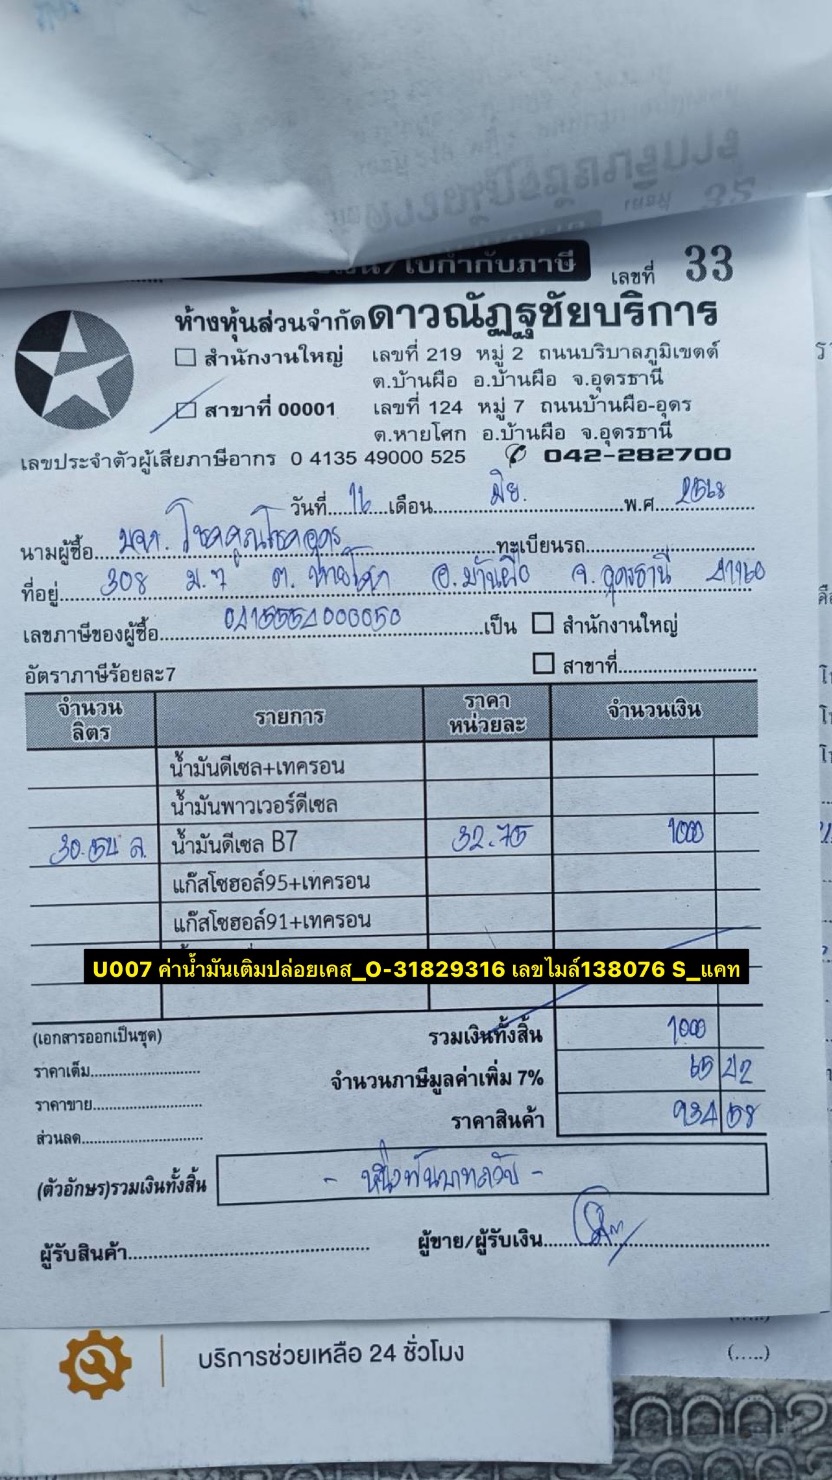 เงิน/ใบกำกับภาษี
เลขที่ 33
ห้างหุ้นส่วนจำกัดดาวณัฏฐชัยบริการ
สำนักงานใหญ่ เลขที่ 219 หมู่ 2 ถนนบริบาลภูมิเขตต์
ต.บ้านผือ อ.บ้านผือ จ.อุดรธานี
สาขาที่ 00001 เลขที่ 124 หมู่ 7 ถนนบ้านผือ-อุดร
ต.หายโศก อ.บ้านผือ จ.อุดรธานี
เลขประจำตัวผู้เสียภาษีอากร 0 4135 49000 525 042-282700
วันที่ 16 เดือน มิย. พ.ศ 2568
นามผู้ซื้อ บจก. โชคคูณโชคอุดร ทะเบียนรถ
ที่อยู่ 308 ม.7 ต. หายโศก อ.บ้านผือ จ.อุดรธานี 41160
เลขภาษีของผู้ซื้อ 0415554000050 เป็น สำนักงานใหญ่
อัตราภาษีร้อยละ7 สาขาที่
จำนวนลิตร รายการ ราคาหน่วยละ จำนวนเงิน
น้ำมันดีเซล+เทครอน
น้ำมันพาวเวอร์ดีเซล
30.54 ล. น้ำมันดีเซล B7 32.75 1000
แก๊สโซฮอล์95+เทครอน
แก๊สโซฮอล์91+เทครอน
U007 ค่าน้ำมันเติมปล่อยเคส_O-31829316 เลขไมล์138076 S_แคท
(เอกสารออกเป็นชุด) รวมเงินทั้งสิ้น 1000
ราคาเต็ม จำนวนภาษีมูลค่าเพิ่ม 7% 65 42
ราคาขาย ราคาสินค้า 934 58
ส่วนลด
(ตัวอักษร)รวมเงินทั้งสิ้น - หนึ่งพันบาทถ้วน -
ผู้รับสินค้า ผู้ขาย/ผู้รับเงิน
บริการช่วยเหลือ 24 ชั่วโมง
(.....)